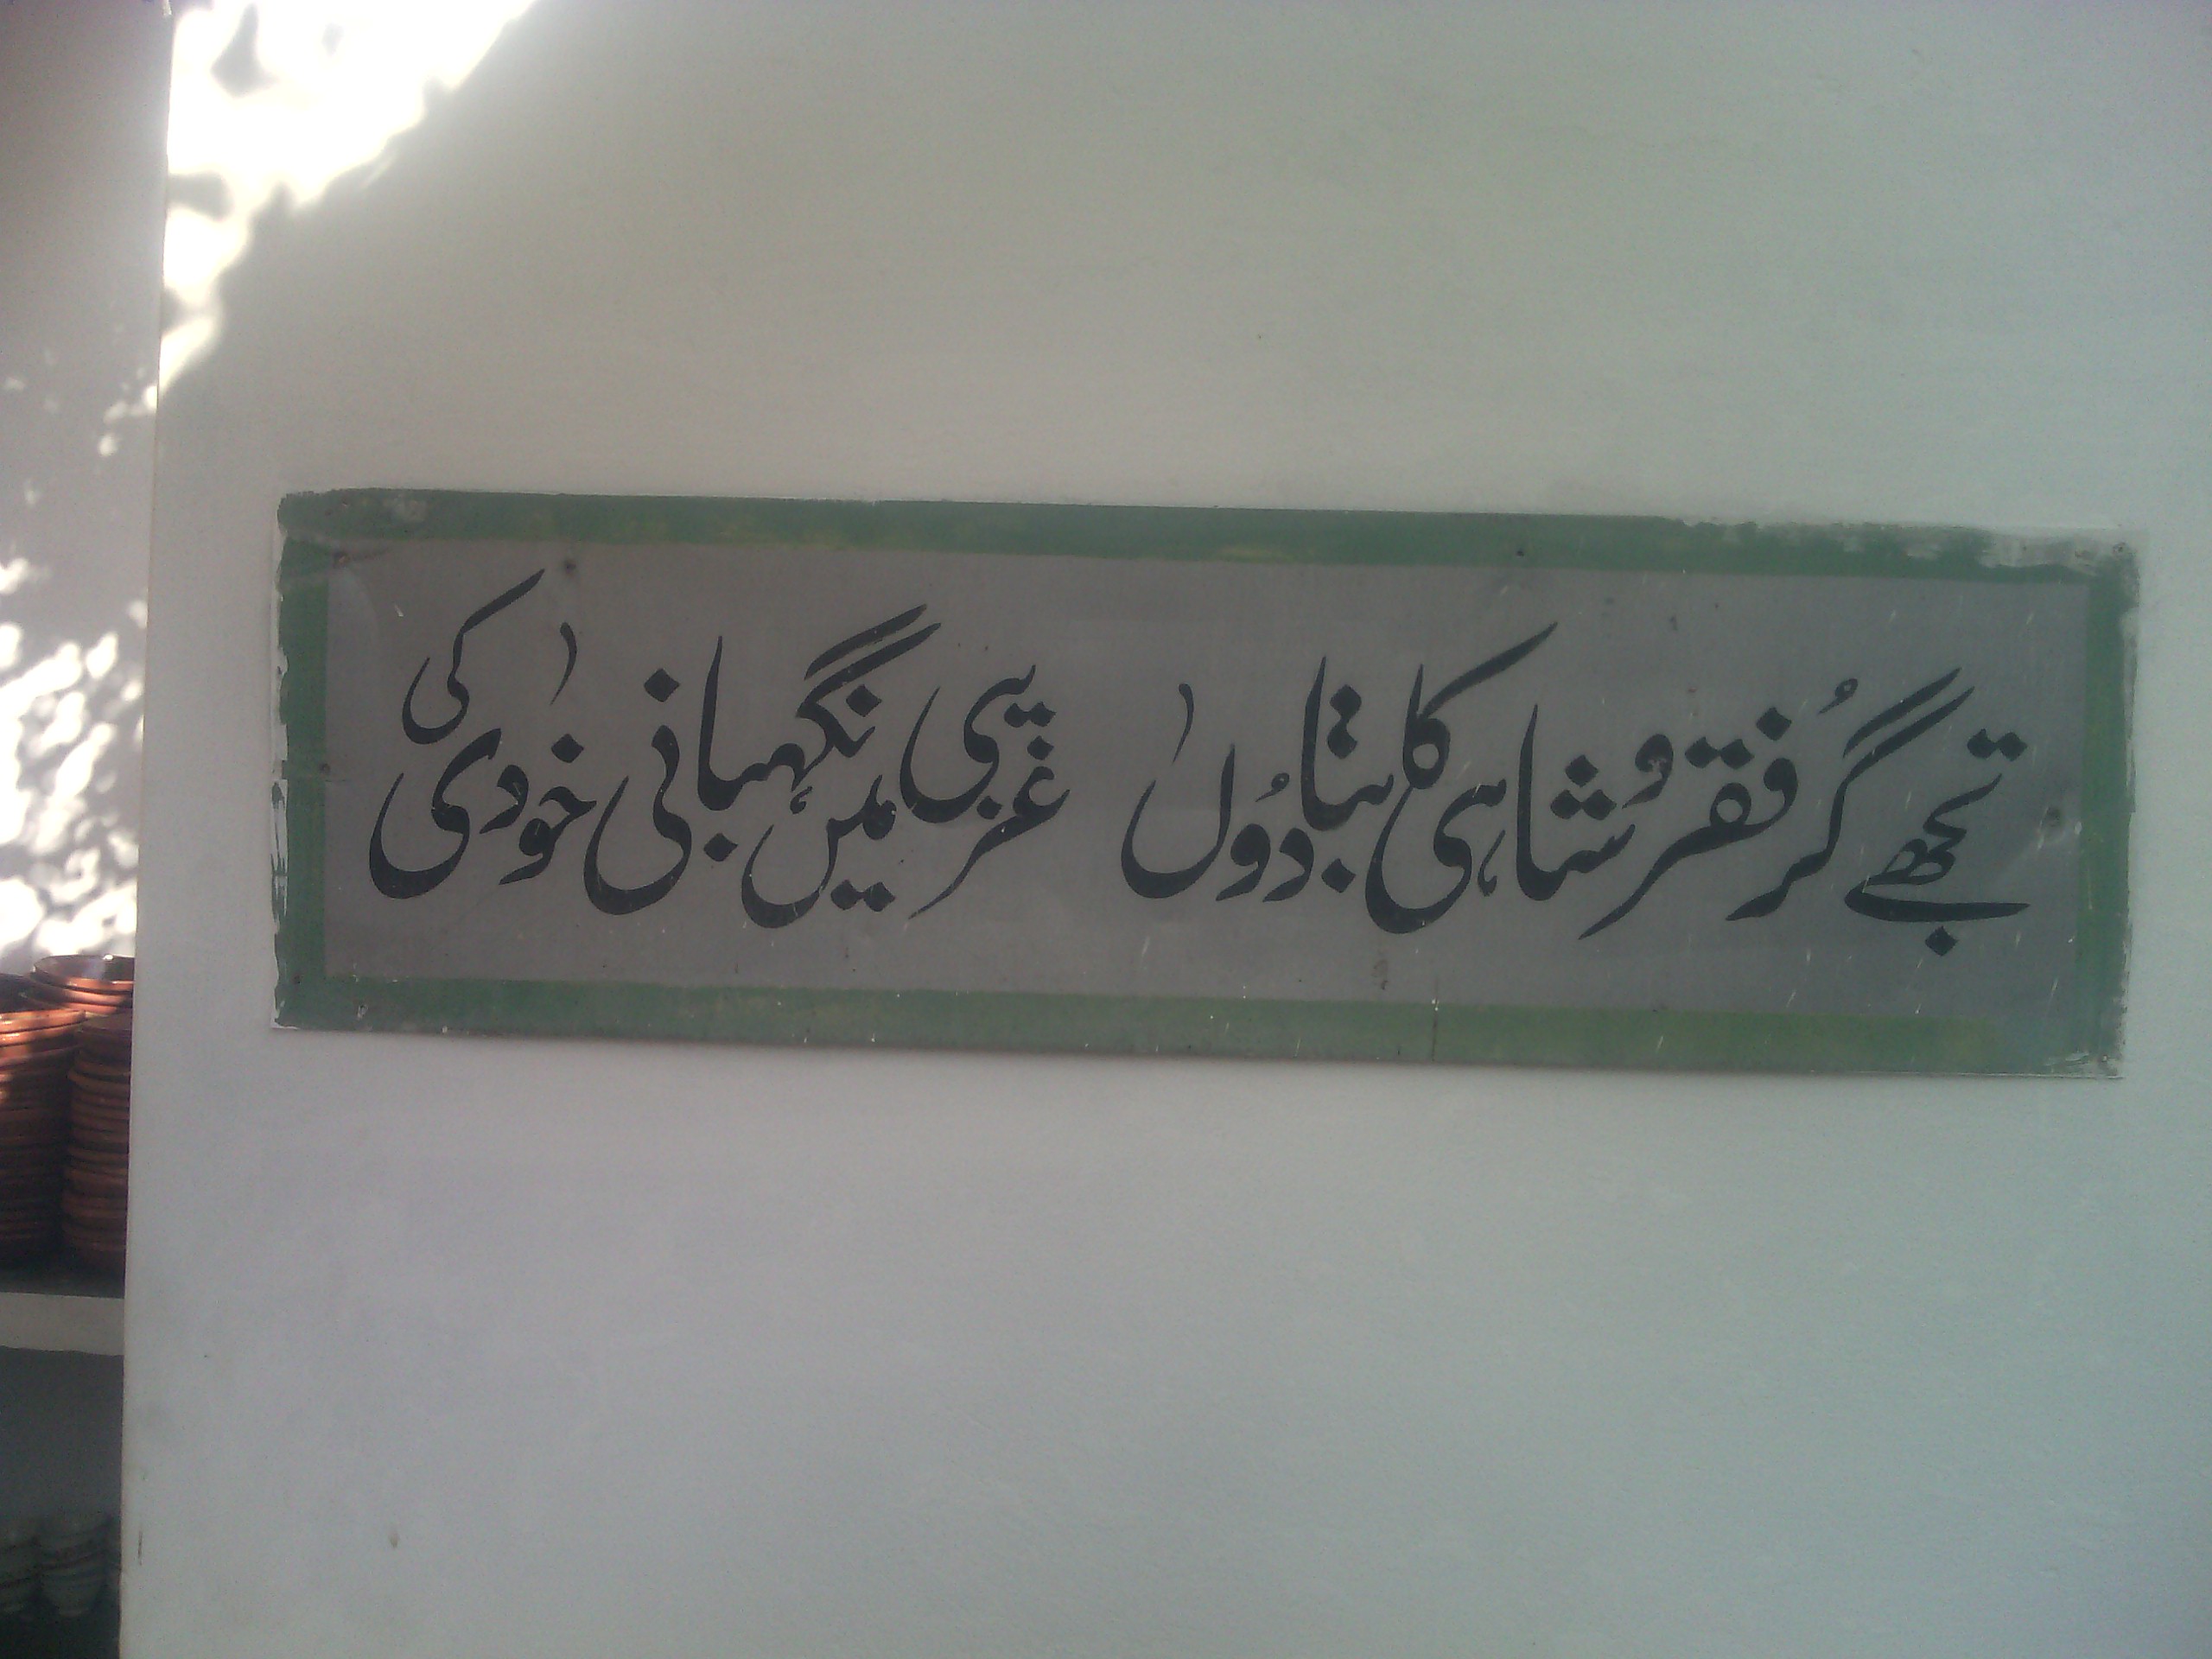 تجھے گُر فقر و شاہی کا بتا دُوں غریبی میں نگہبانی خودی کی